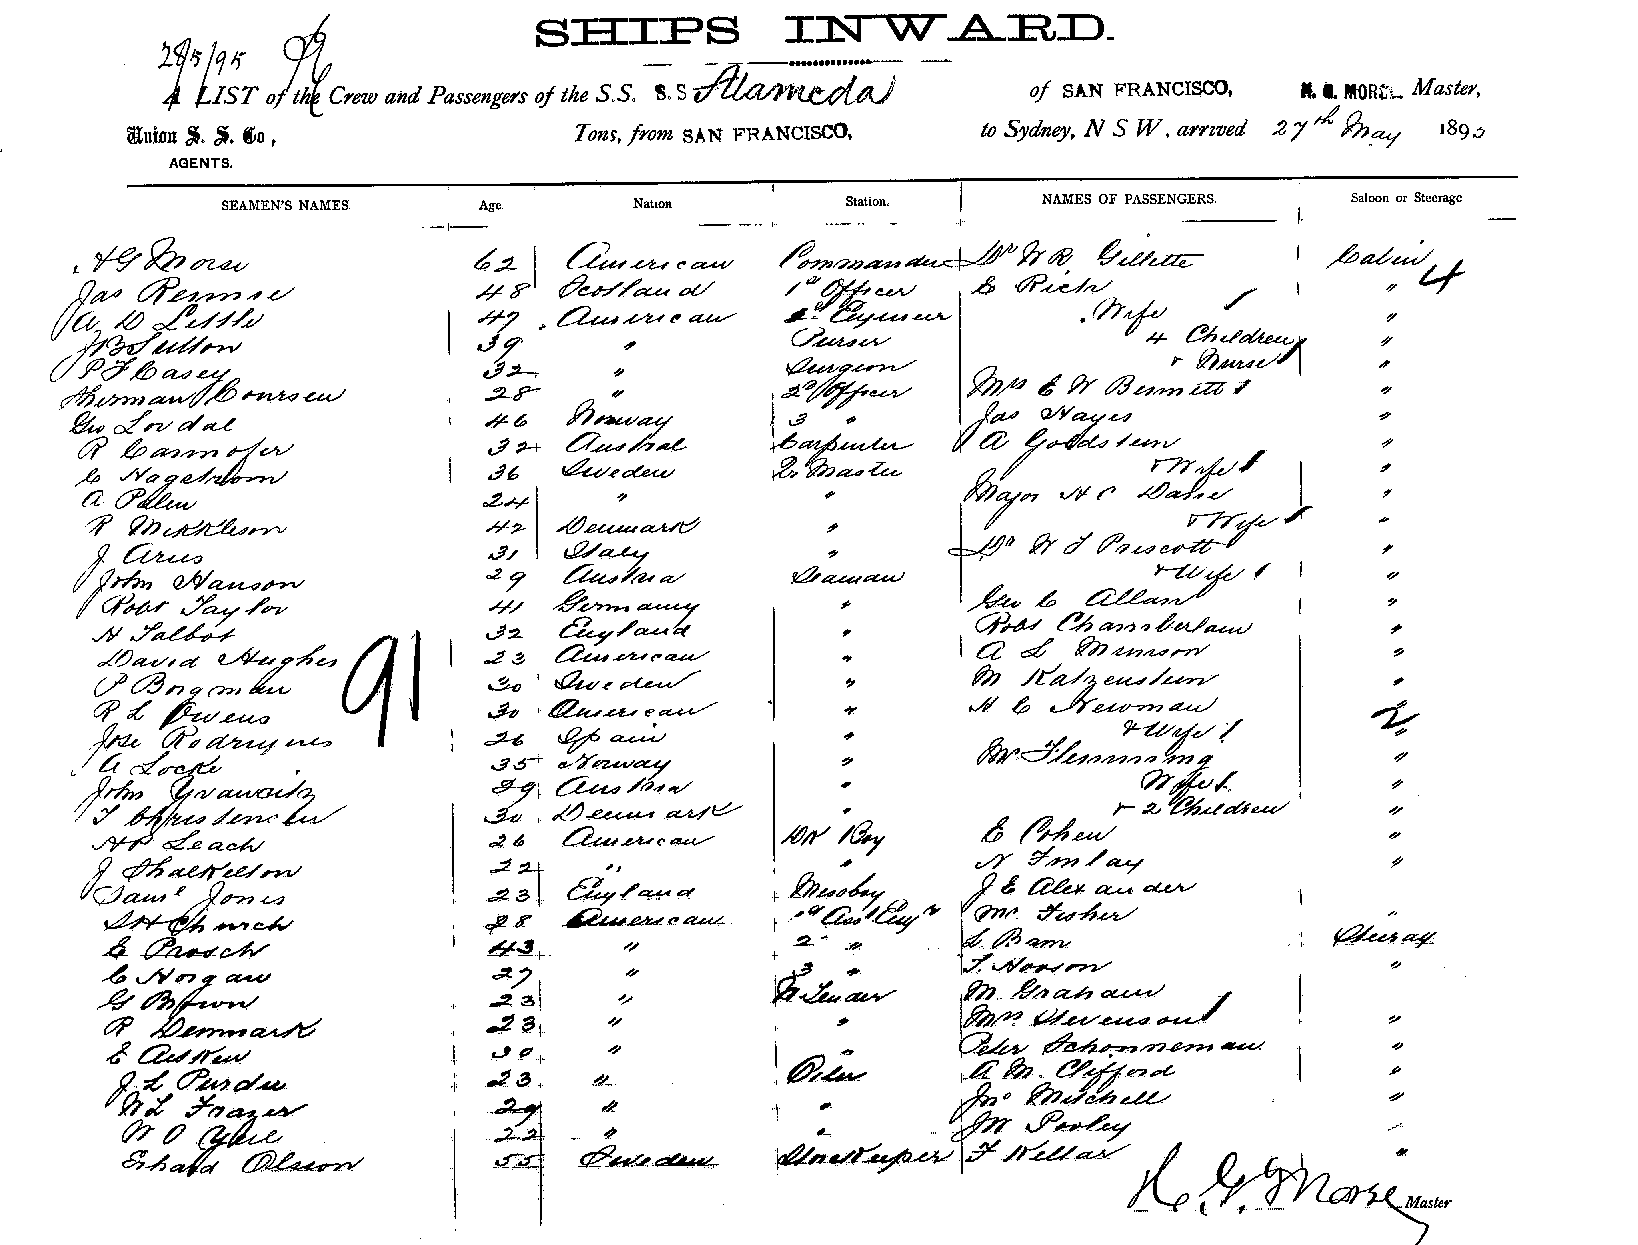 SHIPS INWARD.
28/5/95
A LIST of the Crew and Passengers of the S.S. S.S Alameda of SAN FRANCISCO, H. G. MORSE Master,
Union S. S. Co, Tons, from SAN FRANCISCO, to Sydney, N S W, arrived 27th May 1895
AGENTS.
SEAMEN'S NAMES Age Nation Station. NAMES OF PASSENGERS. Saloon or Steerage
H G Morse 62 American Commander Dr W R Gillette Cabin 4
Jas Rennie 48 Scotland 1st Officer E Rich "
A. D Little 47 American Engineer Wife "
J B Sutton 39 " Purser 4 Children "
P F Casey 32 " Surgeon + Nurse "
Sherman Coursen 28 " 2d Officer Mrs E W Bennetts "
Geo Lovdal 46 Norway 3 " Jas Hayes "
R 32 Austral Carpenter A Goodstein "
C Hagestrom 36 Sweden Q. Master + Wife "
A Palen 24 " " Major H C Dane "
R Mikkleson 42 Denmark " + Wife "
J Arus 31 Italy " Dr W F Prescott "
John Hanson 29 Austria Seaman + Wife "
Robt Taylor 41 Germany " Geo C Allan "
H Talbot 32 England " Robt Chamberlain "
David Hughes 91 23 American " A L Munson "
P Borgman 30 Sweden " M Katzenstein "
R L Owens 30 American " H C Newman 2 "
Jose Rodrigues 26 Spain " + Wife "
A Locke 35 Norway " Mr Flemming "
John 29 Austria " Wife "
T Christensen 30 Denmark " + 2 Children "
H P Leach 26 American DK Boy E Cohen "
J Shakelton 22 " " N Imlay "
Saml Jones 23 England Messboy J E Alexander
S H Church 28 American 1st Asst Engr Mr Fisher "
E Prosch 43 " 2 " L Bam Steerag
C Horgan 27 " 3 " T. Hooson "
G Brown 23 " W Tender M Graham
R Denmark 23 " " Mrs Stevenson "
E Aitken 30 " " Peter Schonneman "
J L Purdie 23 " Oiler A M. Clifford "
W L Frazer 29 " " Jno Mitchell "
W O 22 " " J W Pooley "
Erhard Olsson 55 Sweden Storekeeper F Kellar "
H. G. Morse Master